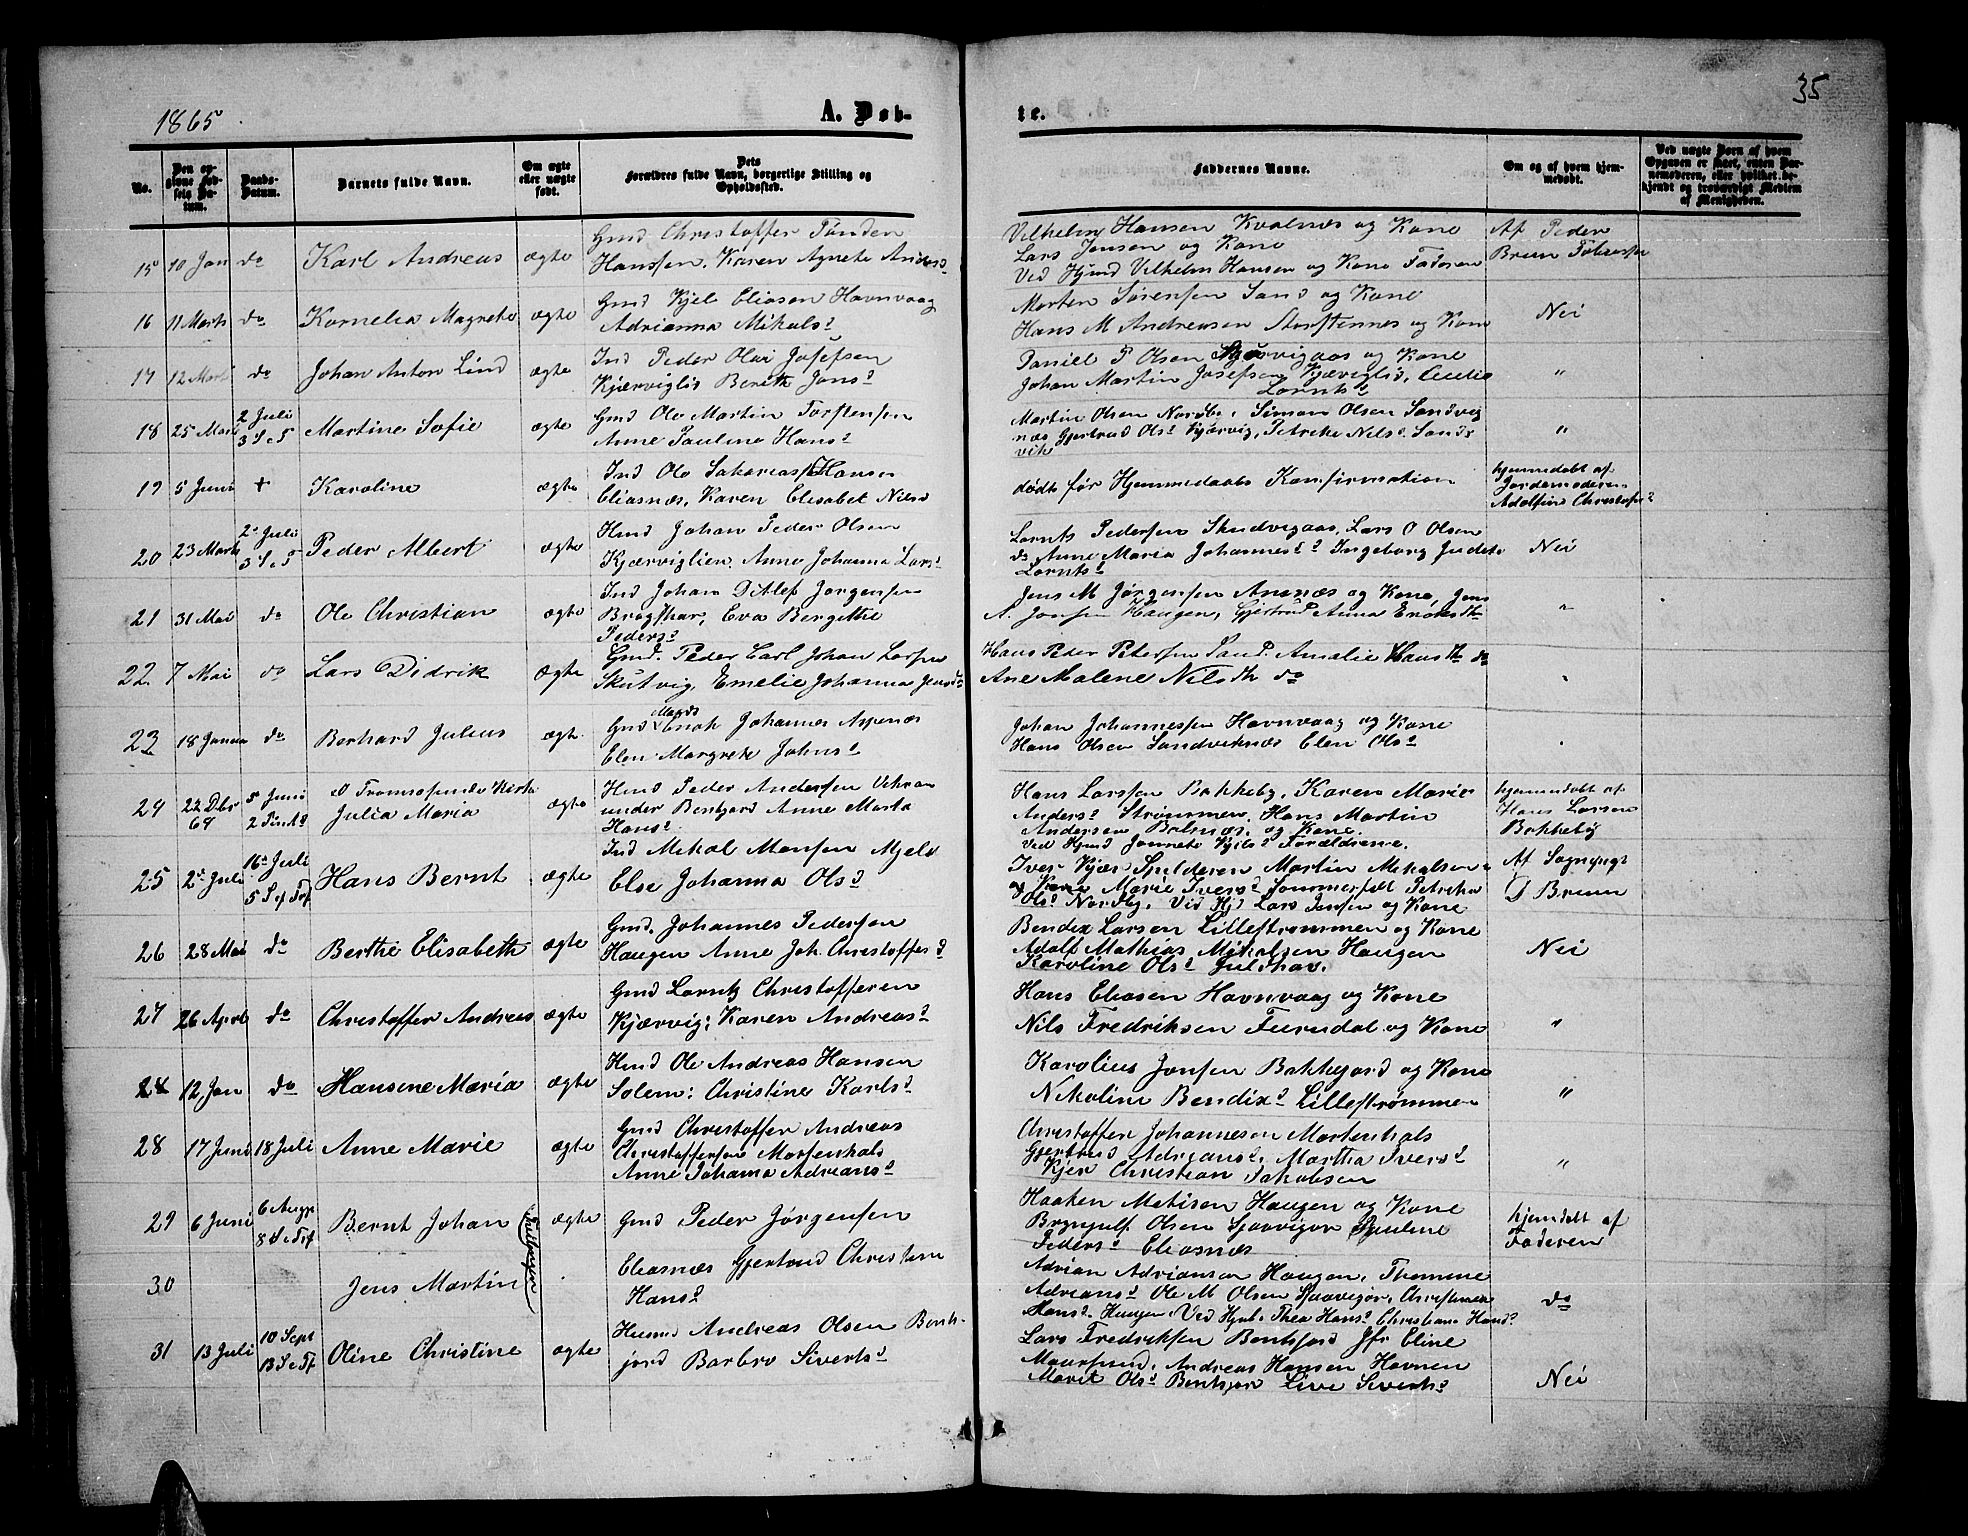 1865
A. Døb-
te.
35
No.
Den opgivne Fødsels Datum.
Daabs-Datum.
Barnets fulde Navn.
Om ægte eller uægte født.
Dets Forældres fulde Navn, borgerlige Stilling og Opholdssted.
Faddernes Navne.
Om og af hvem hjemmedøbt.
Ved uægte Børn af hvem Opgaven er skeet, enten Barnemoderen, eller hvilket bekjendt og troværdigt Medlem af Menigheden.
15 10 Jan do Karl Andreas ægte Gmd Christoffer
Hanssen, Karen Agnete
Vilhelm Hansen Kvalnæs og Kone
Lars Jensen og Kone
Ved Hjmd Vilhelm Hansen og Kone Faderen
Af Peder
16 11 Marts do Kornelia Magrete ægte Gmd Kjel Eliasen Havnvaag
Adrianna Mikalsd
Morten Sørensen Sand og Kone
Hans M Andreasen Storstennes og Kone
Nei
17 12 Mart do Johan Anton Lind ægte Ind Peder Olai Josefsen
Kjærviglid Berith Jonsd
Daniel P Olsen og Kone
Johan Martin Josefsen Kjærviglid, Cecilie
Lorntsd
"
18 25 Mart 2 Juli
3 S e P Martine Sofie ægte Gmd Ole Martin Torstensen
Anne Pauline Hansd
Martin Olsen Nordby, Simon Olsen Sandvig
næs Gjertrud Olsd Kjærvig, Petrike Nilsd Sand
vik
"
19 5 Juni + Karoline ægte Ind Ole Sakarias Hansen
Eliasnæs, Karen Elisabet Nilsd
død før Hjemmedaabs Konfirmation
hjemmedøbt af
Jordemoderen
Adolfine Christofsd
20 23 Marts 2 Juli
3 S e P Peder Albert ægte Hmd Johan Peder Olsen
Kjærviglien, Anne Johanna Larsd
Lornts Pedersen Skudvigaas, Lars O Olsen
do Anne Maria Johannesd Ingeborg Judit
Lorntsd
Nei
21 31 Mai do Ole Christian ægte Ind Johan Ditlef Jørgensen
Eva Bergitte
Pedersd
Jens M Jørgensen og Kone, Jens
A. Jonsen Haugen, Gjertrud Anna
"
22 7 Mai do Lars Didrik ægte Gmd. Peder Carl Johan Larsen
Skutvig, Emelie Johanna Jensd
Hans Peder Petersen Sand. Amalie Hans D. do
Ane Malene Nils D. do
"
23 18 Januar do Berhard Julius ægte Gmd Mands Enok Johannes Aspenæs
Elen Margrete Johnsd
Johan Johannessen Havnvaag og Kone
Hans Olsen Sandviknæs Elen Olsd
"
24 22 Dbr
64 5 Juni
2 Pints Tromsøsunds Kirke
Julia Maria ægte Hmd Peder Andersen
under Bentjord Anne Marta
Hansd
Hans Larssen Bakkeby, Karen Marie
Andersd Strømmen, Hans Martin
Andersen Balsnæs, og Kone.
Ved Hjmd Jonnete Kjilsd Forældrene.
hjemmdøbt af
Hans Larsen
Bakkeby
25 2 Juli 16 Juli
5 S e Tref Hans Bernt ægte Ind Mikal Monsen Mjeld
Else Johanna Olsd
Iver Kjær Spilderen Martin Mikalsen
og Kone Marie Iversd Sommerfelt Petrikke
Olsd Nordby, Ved Hj Lars Jensen og Kone
Af Sognepgt
Brun
26 28 Mai do Berthe Elisabeth ægte Gmd. Johannes Pedersen
Haugen Anne Joh. Christoffersd
Bendix Larsen Lillestrømmen og Kone
Adolf Mathias Mikalsen Haugen
Karoline Olsd
Nei
27 26 April do Christoffer Andreas ægte Gmd Lorntz Christoffersen
Kjærvig; Karen Andreasd
Hans Eliasen Havnvaag og Kone
Nils Fredriksen og Kone
"
28 12 Jan do Hansine Maria ægte Hmd Ole Andreas Hansen
Solem; Christine Karlsd
Karolius Jonsen Bakkejord og Kone
Nikoline Bendixd Lillestrømmen
"
28 17 Juni 18 Juli Anne Marie ægte Gmd Christoffer Andreas
Christoffersen Mortenhals
Anne Johanna Adriansd
Christoffer Johannesen Mortenhals
Gjertrud Adriansd, Martha Iversd
Kjer Christian Jakobsen
"
29 6 Juni 6 Aug
8 S e Tref Bernt Johan Tvillinger ægte Gmd Peder Jørgensen
Haaken Matisen Haugen og Kone
Bryngulf Olsen
Pedersd Eliasnæs
hjemdøbt af
Faderen
30 Jens Martin Eliasnæs Gjertrud Christine
Hansd
Adrian Adriansen Haugen. Thomine
Adriansd Ole M Olsen Christine
Hansd Haugen. Ved Hjmd. Thea Hansd Christiane Hansd
do
31 13 Juli 10 Sept
13 S e Tf Oline Christine ægte Huusmd Andreas Olsen Bent-
jord Barbro Sivertsd
Lars Fredriksen Bentjord Jfr Eline
Andreas Hansen Havnen
Marit Olsd Bentjor Live Sivertsd
Nei